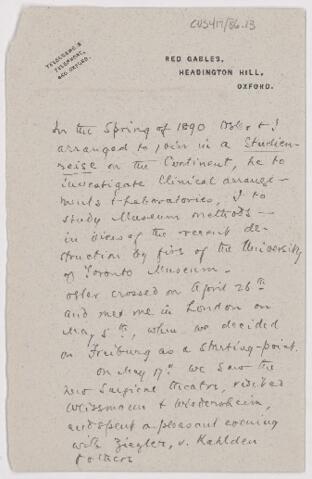 CUS417/86.13
TELEGRAMS &
TELEPHONE,
OXFORD.
RED GABLES,
HEADINGTON HILL,
OXFORD.
In the Spring of 1890 Osler & I
arranged to join in a Studien-
reise on the Continent, he to
investigate Clinical arrange-
ments & Laboratories, I to
study Museum methods —
in view of the recent de-
struction by fire of the University
of Toronto Museum.
Osler crossed on April 26th
and met me in London on
May 5th, when we decided
on Freiburg as a starting-point.
On May 17th we saw the
new Surgical Theatre, visited
Weissmann & Wiedersheim,
and spent a pleasant evening
with Ziegler, v. Kahlden
& others